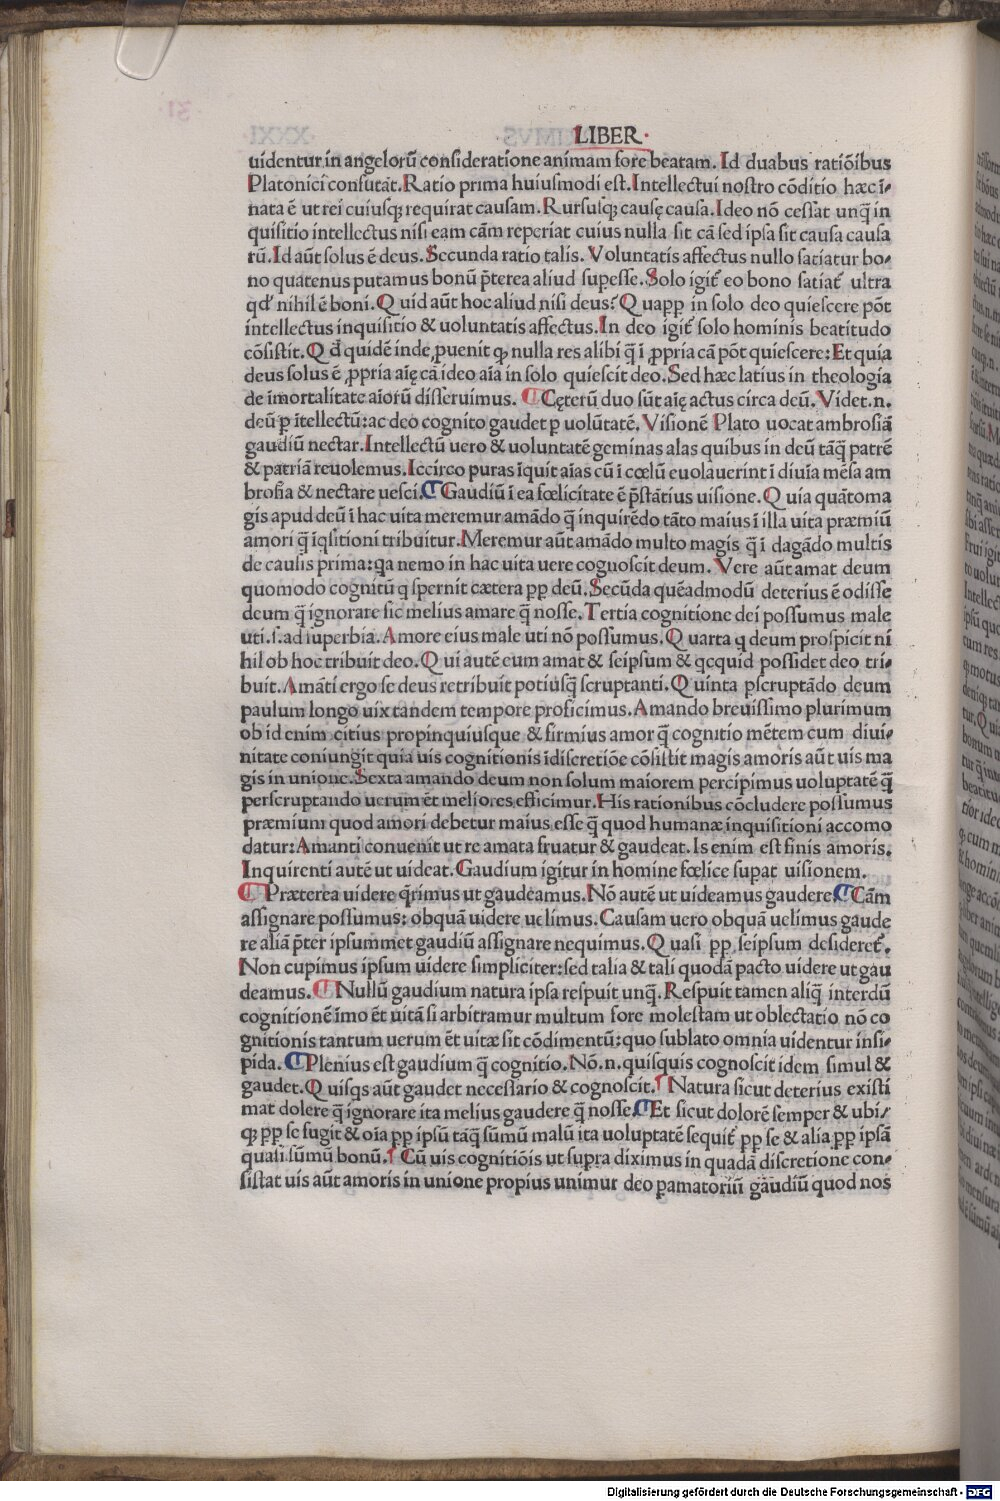 LIBER
uidentur in angelorū consideratione animam fore beatam. Id duabus ratiōibus
Platonici confutāt. Ratio prima huiusmodi est. Intellectui nostro cōditio hæc ī-
nata ē ut rei cuiusqȝ requirat causam. Rursusqȝ causę causa. Ideo nō cessat unq̄ in
quisitio intellectus nisi eam cām reperiat cuius nulla sit cā sed ipsa sit causa causa
rū. Id aūt solus ē deus. Secunda ratio talis. Voluntatis affectus nullo satiatur bo-
no quatenus putamus bonū p̄terea aliud supesse. Solo igit̄ eo bono satiat̄ ultra
qd̓ nihil ē boni. Quid aūt hoc aliud nisi deus? Quapp̱ in solo deo quiescere pōt
intellectus inquisitio & uoluntatis affectus. In deo igit̄ solo hominis beatitudo
cōsistit. Qd̄ quidē inde ꝓuenit qȝ nulla res alibi q̄ ī ꝓpria cā pōt quiescere: Et quia
deus solus ē ꝓpria aię cā ideo aīa in solo quiescit deo. Sed hæc latius in theologia
de īmortalitate aīorū disseruimus. ¶ Cęterū duo sūt aię actus circa deū. Videt .n.
deū ꝑ ītellectū: ac deo cognito gaudet ꝑ uolūtatē. Visionē Plato uocat ambrosiā
gaudiū nectar. Intellectū uero & uoluntatē geminas alas quibus in deū tāq̄ patrē
& patriā reuolemus. Iccirco puras īquit aīas cū ī cœlū euolauerint ī diuīa mēsa am
brosia & nectare uesci. ¶ Gaudiū ī ea fœlicitate ē p̄stātius uisione. Quia quātoma
gis apud deū ī hac uita meremur amādo q̄ inquirēdo tāto maius ī illa uita præmiū
amori q̄ īqsitioni tribuitur. Meremur aūt amādo multo magis q̄ ī dagādo multis
de causis prima: qa nemo in hac uita uere cognoscit deum. Vere aūt amat deum
quomodo cognitū q spernit cætera pp̱ deū. Secūda quēadmodū deterius ē odisse
deum q̄ ignorare sic melius amare q̄ nosse. Tertia cognitione dei possumus male
uti .s. ad superbiā. Amore eius male uti nō possumus. Quarta q deum prospicit ni
hil ob hoc tribuit deo. Qui autē eum amat & seipsum & qcquid possidet deo tri-
buit. Amāti ergo se deus retribuit potiusq̄ scruptanti. Quinta ꝑscruptādo deum
paulum longo uix tandem tempore proficimus. Amando breuissimo plurimum
ob id enim citius propinquiusque & firmius amor q̄ cognitio mētem cum diui-
nitate coniungit quia uis cognitionis ī discretiōe cōsistit magis amoris aūt uis ma
gis in unione. Sexta amando deum non solum maiorem percipimus uoluptatē q̄
perscruptando uerum ēt meliores efficimur. His rationibus cōcludere possumus
præmium quod amori debetur maius esse q̄ quod humanæ inquisitioni accomo
datur: Amanti conuenit ut re amata fruatur & gaudeat. Is enim est finis amoris.
Inquirenti autē ut uideat. Gaudium igitur in homine fœlice supat uisionem.
¶ Præterea uidere q̄rimus ut gaudeamus. Nō autē ut uideamus gaudere ¶ Cām
assignare possumus: obquā uidere uelimus. Causam uero obquā uelimus gaude
re aliā p̄ter ipsummet gaudiū assignare nequimus. Quasi pp̱ seipsum desideret̄.
Non cupimus ipsum uidere simpliciter: sed talia & tali quodā pacto uidere ut gau
deamus. ¶ Nullū gaudium natura ipsa respuit unq̄. Respuit tamen aliq̄ interdū
cognitionē īmo ēt uitā si arbitramur multum fore molestam ut oblectatio nō co
gnitionis tantum uerum ēt uitæ sit cōdimentū: quo sublato omnia uidentur insi-
pida. ¶ Plenius est gaudium q̄ cognitio. Nō .n. quisquis cognoscit idem simul &
gaudet. Quisqs aūt gaudet necessario & cognoscit. ¶ Natura sicut deterius existi
mat dolere q̄ ignorare ita melius gaudere q̄ nosse. ¶ Et sicut dolorē semper & ubi-
qȝ pp̱ se fugit & oīa pp̱ ipsū tāq̄ sūmū malū ita uoluptatē sequit̄ pp̱ se & alia pp̱ ipsā
quasi sūmū bonū. ¶ Cū uis cognitiōis ut supra diximus in quadā discretione con-
sistat uis aūt amoris in unione propius unimur deo ꝑ amatoriū gaudiū quod nos
Digitalisierung gefördert durch die Deutsche Forschungsgemeinschaft - DFG